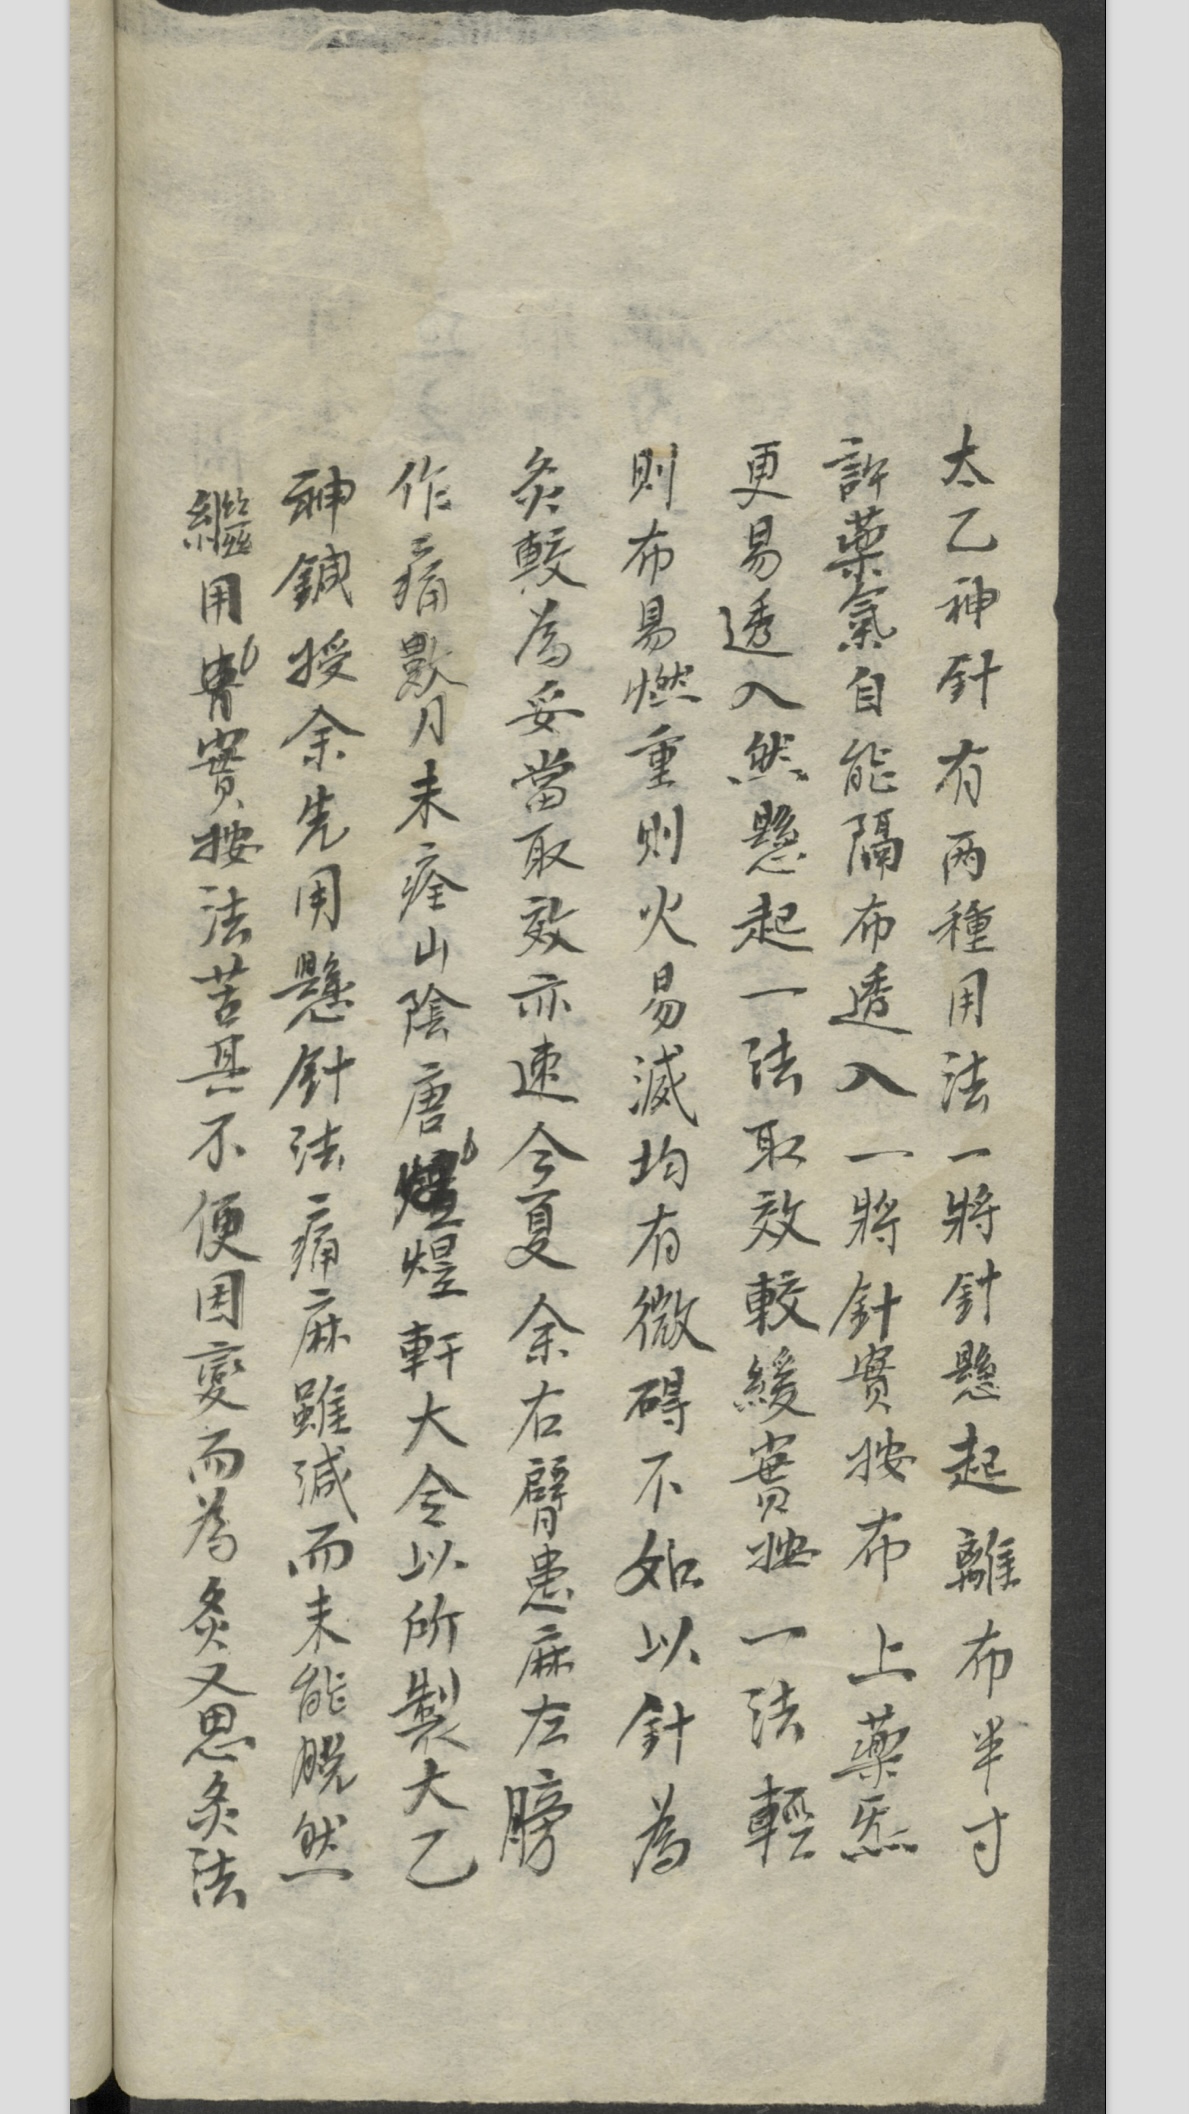 太乙神針有两種用法一將針懸起離布半寸
許藥氣自能隔布透入一將針實按布上藥炁
更易透入然懸起一法取效較緩實按一法輕
則布易燃重则火易滅均有微碍不如以針為
灸較為妥當取效亦速今夏余右臂患麻左膀
作痛數月未痊山陰唐煜軒大令以所製大乙
神鍼授余先用懸針法痛麻雖減而未能脱然
繼用實按法苦其不便因變而為灸又思灸法